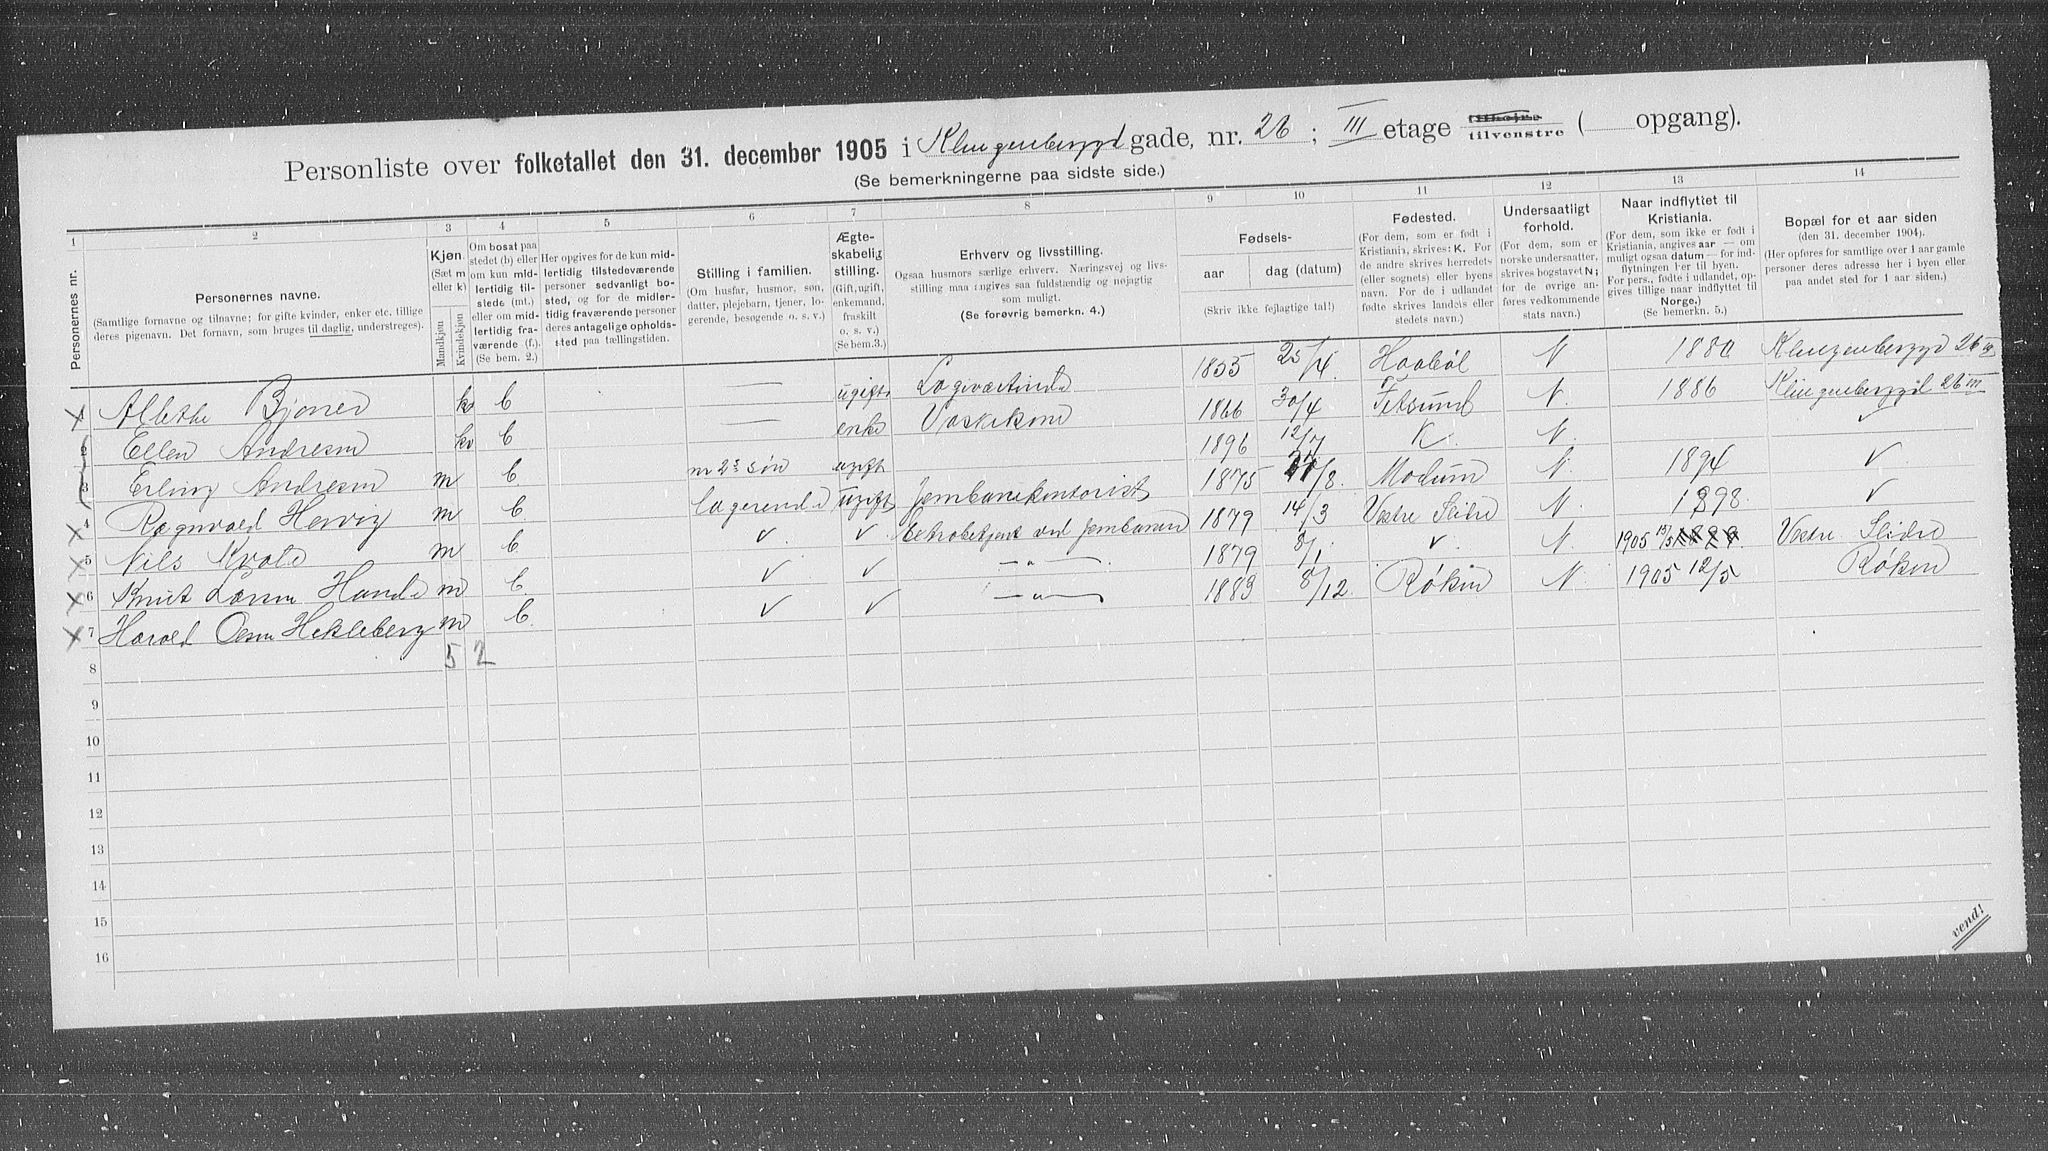 Personliste over folketallet den 31. december 1905 i Klingenberggd gade, nr. 26; III etage tilhøire tilvenstre ( opgang).
(Se bemerkningerne paa sidste side.)
1 2 3 4 5 6 7 8 9 10 11 12 13 14
Personernes nr.
Personernes navne.
(Samtlige fornavne og tilnavne; for gifte kvinder, enker etc. tillige
deres pigenavn. Det fornavn, som bruges til daglig, understreges).
Kjøn.
(Sæt m
eller k)
Mandkjøn
Kvindekjøn
Om bosat paa
stedet (b) eller
om kun mid-
lertidig til-
stede (mt.)
eller om mid-
lertidig fra-
værende (f.)
(Se bem. 2.)
Her opgives for de kun mid-
lertidig tilstedeværende
personer sedvanligt bo-
sted, og for de midler-
tidig fraværende personer
deres antagelige opholds-
sted paa tællingstiden.
Stilling i familien.
(Om husfar, husmor, søn,
datter, plejebarn, tjener, lo-
gerende, besøgende o. s. v.)
Ægte-
skabelig
stilling.
(Gift, ugift,
enkemand,
fraskilt
o. s. v.)
(Se bem. 3.)
Erhverv og livsstilling.
Ogsaa husmors særlige erhverv. Næringsvej og livs-
stilling maa angives saa fuldstændig og nøjagtig
som muligt.
(Se forøvrig bemerkn. 4.)
Fødsels-
aar
dag (datum)
(Skriv ikke fejlagtige tal!)
Fødested.
(For dem, som er født i
Kristiania, skrives: K. For
de andre skrives herredets
(eller sognets) eller byens
navn. For de i udlandet
fødte skrives landets eller
stedets navn.)
Undersaatligt
forhold.
(For dem, som er
norske undersaatter,
skrives bogstavet N;
for de øvrige an-
føres vedkommende
stats navn.)
Naar indflyttet til
Kristiania.
(For dem, som ikke er født i
Kristiania, angives aar — om
muligt ogsaa datum — for ind-
flytningen her til byen.
For pers., fødte i udlandet, op-
gives tillige naar indflyttet til
Norge.)
(Se bemerkn. 5.)
Bopæl for et aar siden
(den 31. december 1904).
(Her opføres for samtlige over 1 aar gamle
personer deres adresse her i byen eller
paa andet sted for 1 aar siden.)
1 Alethe Bjoner k b — ugift Logivertinde 1855 25/4 Haabøl N 1880 Klingenberggd 26 III
2 Ellen Andresen k b — enke Vaskekone 1866 30/4 Fetsund N. 1886 Klingenberggd 26 III
3 Erling Andresen m b n 2s søn ugift 1896 12/7 K. N. ✓
4 Ragnvald Hervig m b logerende ugift Jernbanekontorist 1875 /8. Modum N. 1894 ✓
5 Nils Kvale m b. ✓. ✓. betjent ved Jernbanen 1879 14/3 Vestre Slidre N. 1898. ✓
6 Knut Hande m b. ✓ ✓ —„— 1879 8/1 ✓. N. 1905 13/5 Vestre Slidre
7 Harald Hekleberg m b. ✓ ✓ —„— 1883 8/12. Røken N. 1905 12/5 Røken
8 5 2
9
10
11
12
13
14
15
16
vend!